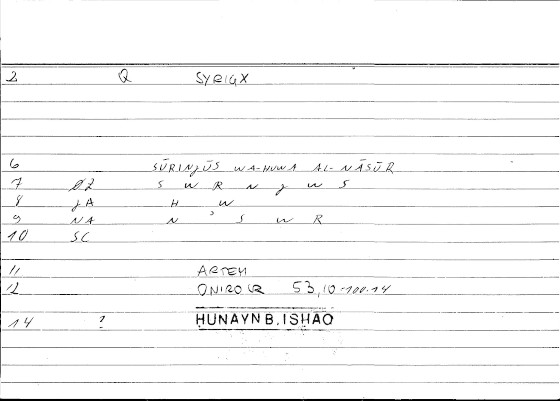 2 Q SYRIGX
6 SŪRINǦŪS WA-HUWA AL-NĀSŪR
7 ØZ S W R N Ǧ W S
8 ǦA H W
9 NA N ' S W R
10 SC
11 ARTEM
12 ONIROCR 53,10-100.14
14 ? HUNAYN B. ISHAQ